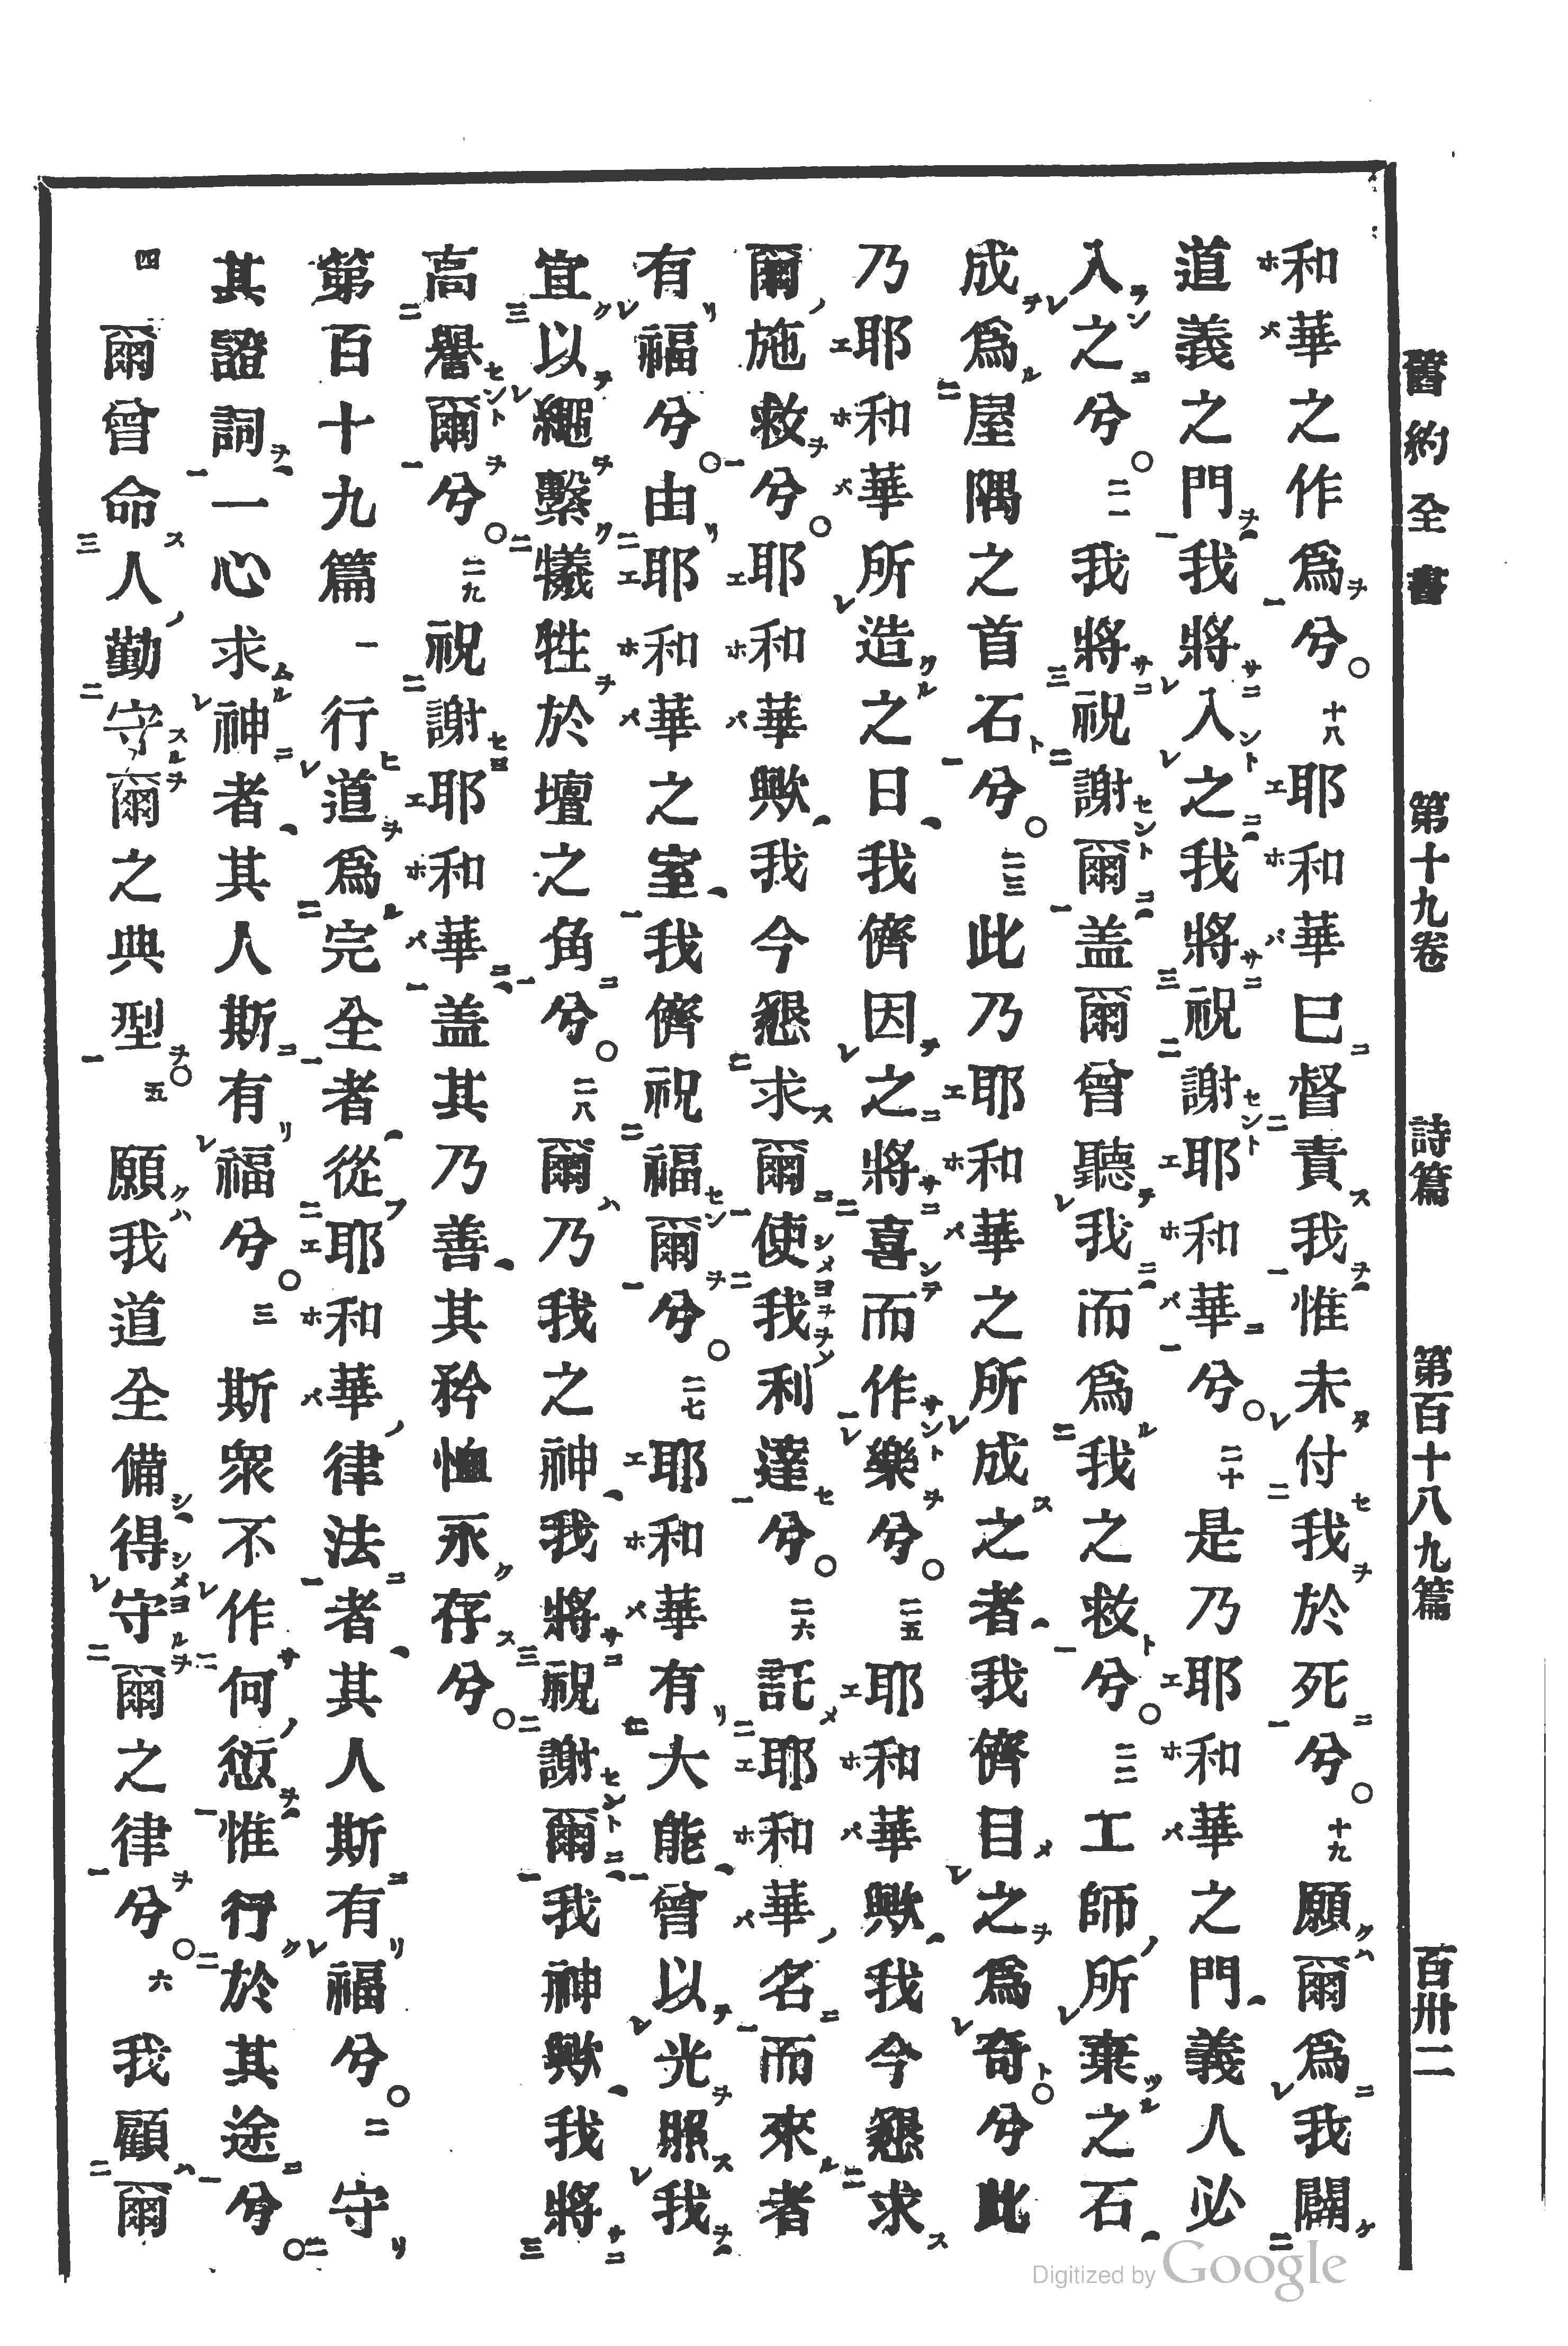 舊約全書 第十九卷 詩篇 第百十八九篇 百卅二
和華之作爲兮○十八耶和華已督責我惟未付我於死兮○十九願爾爲我闢
道義之門我將入之我將祝謝耶和華兮○二十是乃耶和華之門義人必
入之兮○二一我將祝謝爾盖爾曾聽我而爲我之救兮○二二工師所棄之石
成爲屋隅之首石兮○二三此乃耶和華之所成之者我儕目之爲奇兮○此
乃耶和華所造之日我儕因之將喜而作樂兮○二五耶和華歟我今懇求
爾施救兮○耶和華歟我今懇求爾使我利達兮○二六託耶和華名而來者
有福兮○由耶和華之室我儕祝福爾兮○二七耶和華有大能曾以光照我
宜以繩繫犧牲於壇之角兮○二八爾乃我之神我將祝謝爾我神歟我將
高譽爾兮○二九祝謝耶和華盖其乃善其矜恤永存兮○
第百十九篇 一行道爲完全者從耶和華律法者其人斯有福兮○二守
其證詞一心求神者其人斯有福兮○三斯衆不作何愆惟行於其途兮○
四爾曾命人勤守爾之典型○五願我道全備得守爾之律兮○六我顧爾
Digitized by Google